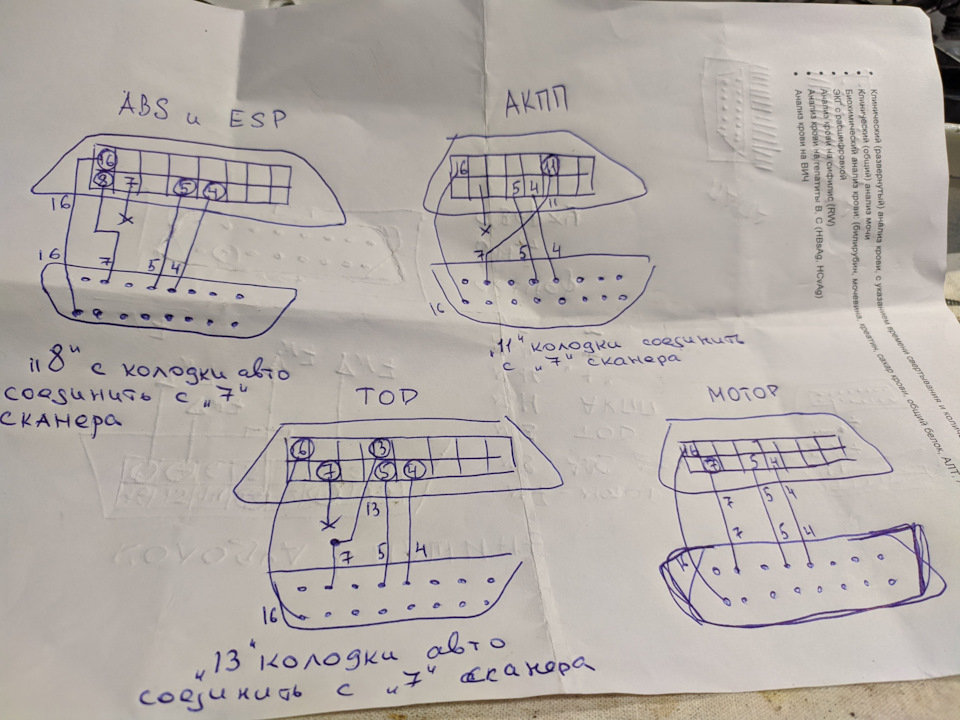 ABS и ESP
16
8
7
5
4
16
16
7
5
4
"8" с колодки авто
соединить с "7"
сканера
АКПП
16
11
5
4
11
7
5
4
16
"11" колодки соединить
с "7" сканера
TOD
16
13
7
5
4
13
7
5
4
16
"13" колодки авто
соединить с "7" сканера
МОТОР
16
7
5
4
7
5
4
7
5
4
16
Клинический (развернутый) анализ крови, с указанием времени свертывания и количе
Клинический (общий) анализ мочи
Биохимический анализ крови: (билирубин, мочевина, креатин, сахар крови, общий белок, АЛТ,
ЭКГ с расшифровкой
Анализ крови на сифилис (RW)
Анализ крови на гепатиты В, С (HBsAg, HCvAg)
Анализ крови на ВИЧ